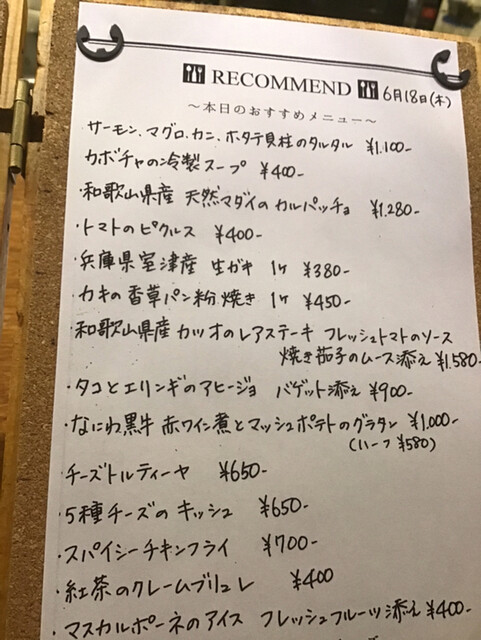 RECOMMEND 6月18日(木)
〜本日のおすすめメニュー〜
サーモン、マグロ、カニ、ホタテ貝柱のタルタル ¥1,100-
カボチャの冷製スープ ¥400-
・和歌山県産 天然マダイのカルパッチョ ¥1,280-
・トマトのピクルス ¥400-
・兵庫県室津産 生ガキ 1ヶ ¥380-
・カキの香草パン粉焼き 1ヶ ¥450-
・和歌山県産カツオのレアステーキ フレッシュトマトのソース
焼き茄子のムース添え ¥1,580-
・タコとエリンギのアヒージョ バゲット添え ¥900-
・なにわ黒牛 赤ワイン煮とマッシュポテトのグラタン ¥1,000-
(ハーフ ¥580)
・チーズトルティーヤ ¥650-
・5種チーズのキッシュ ¥650-
・スパイシーチキンフライ ¥700-
・紅茶のクレームブリュレ ¥400
・マスカルポーネのアイス フレッシュフルーツ添え ¥400-